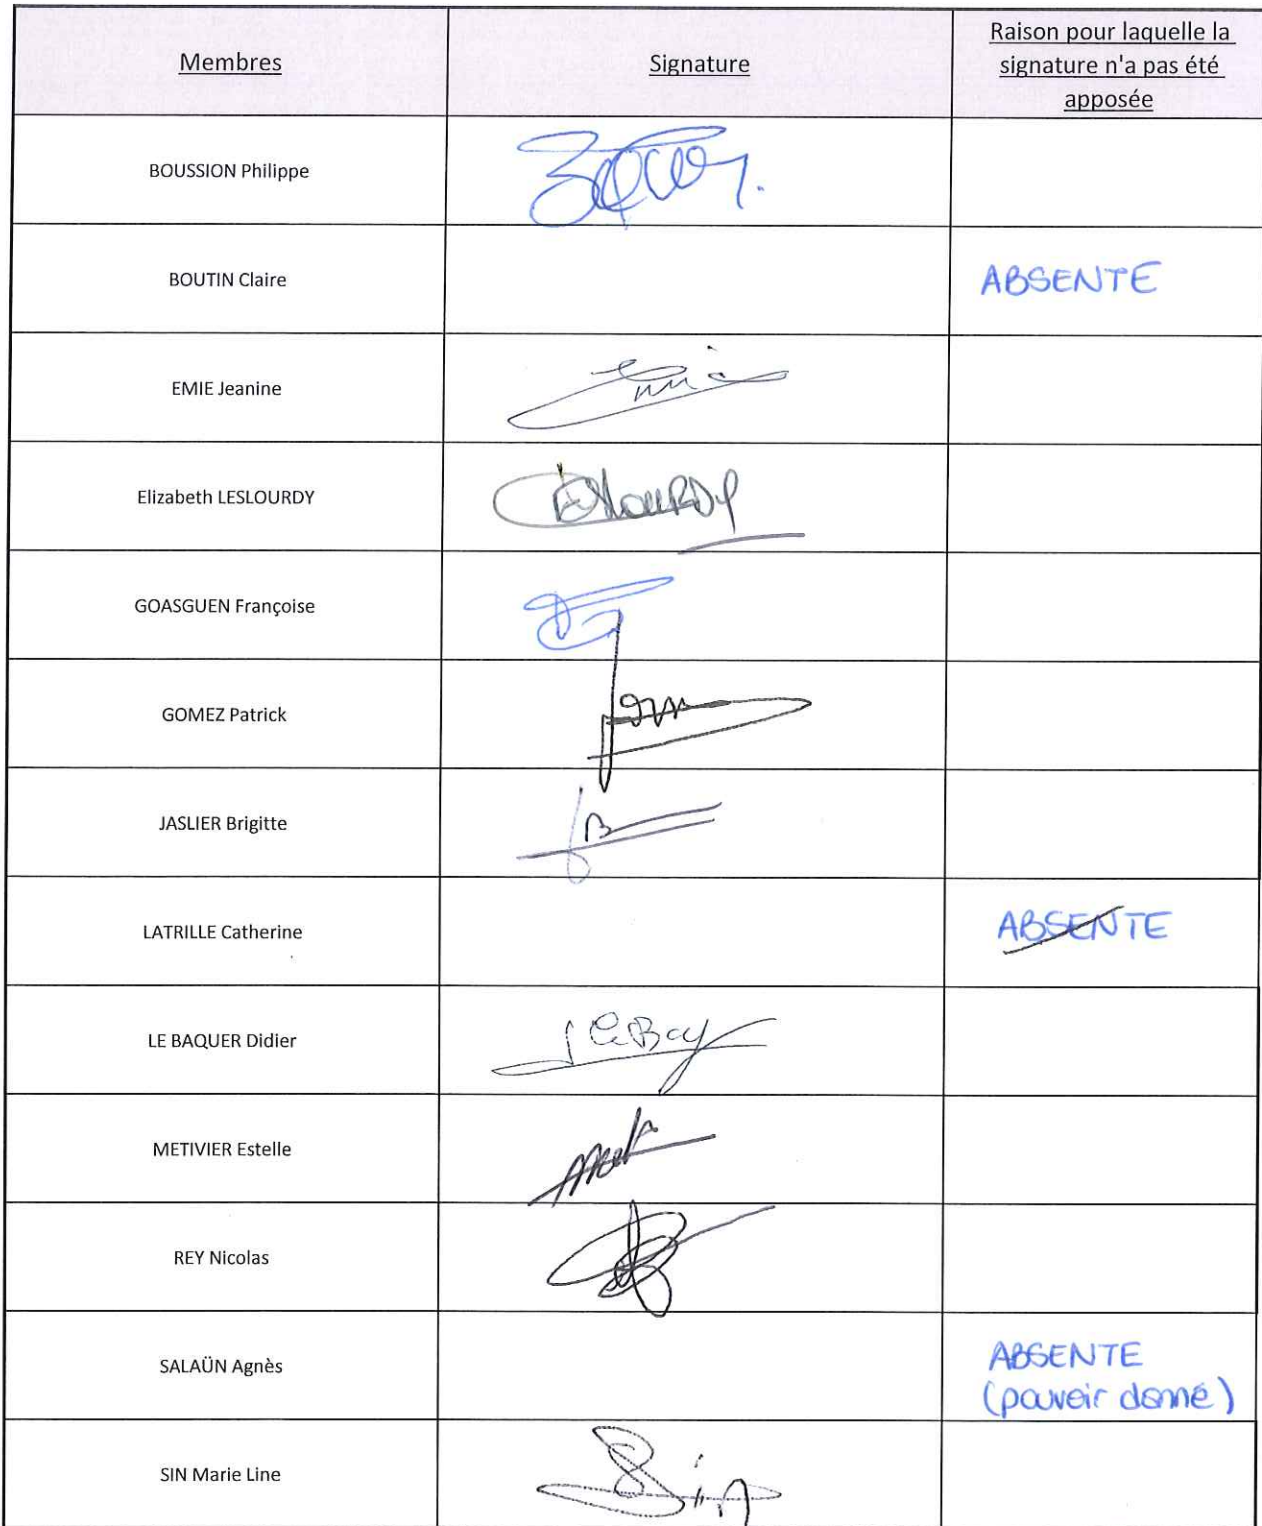 Membres
Signature
Raison pour laquelle la
signature n'a pas été
apposée
BOUSSION Philippe
BOUTIN Claire
ABSENTE
EMIE Jeanine
Elizabeth LESLOURDY
GOASGUEN Françoise
GOMEZ Patrick
JASLIER Brigitte
LATRILLE Catherine
ABSENTE
LE BAQUER Didier
METIVIER Estelle
REY Nicolas
SALAÜN Agnès
ABSENTE
(pouvoir donné)
SIN Marie Line
Sin